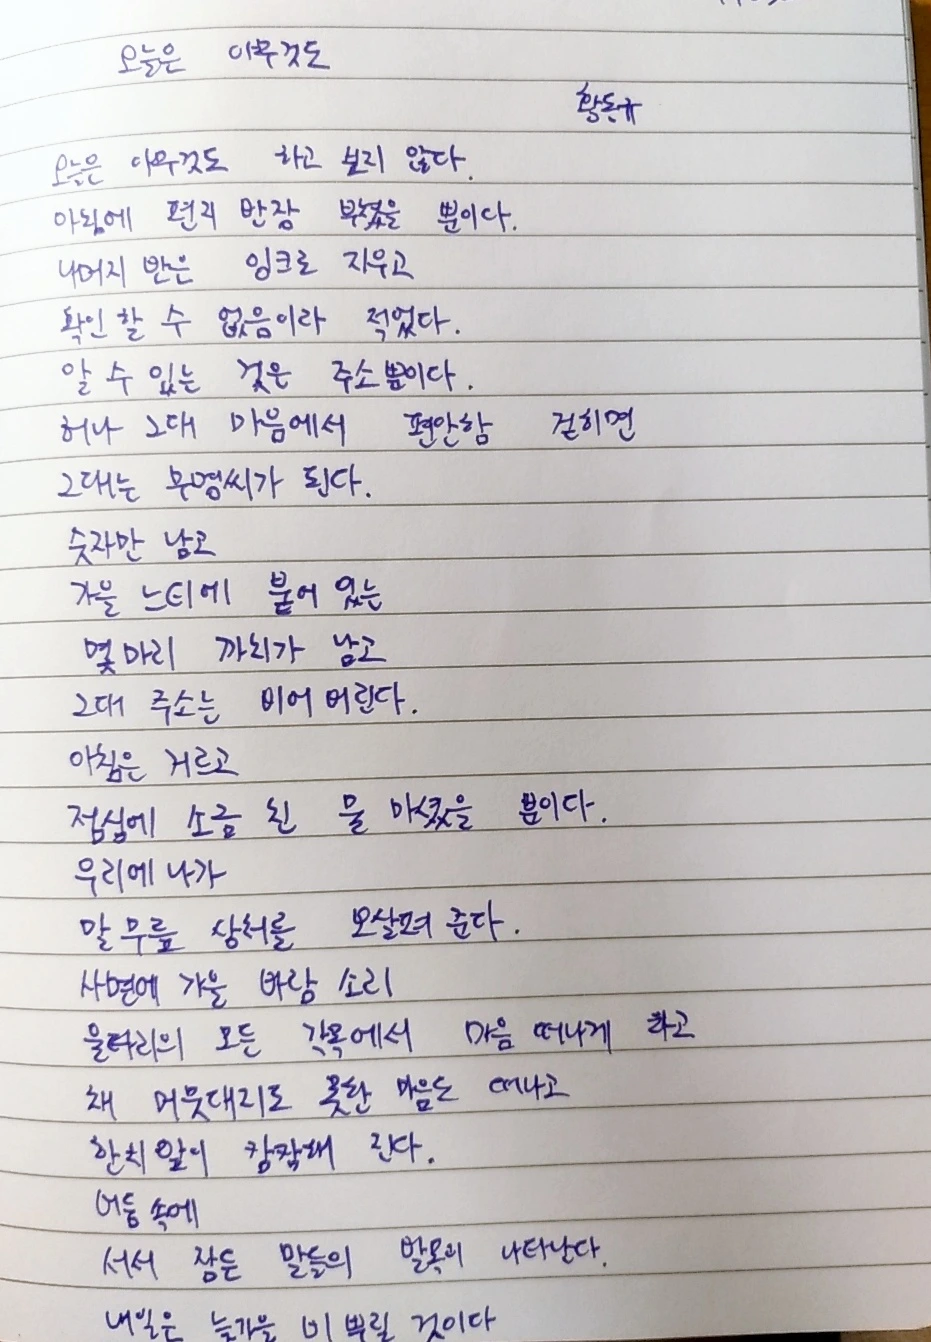 오늘은 아무것도
황동규
오늘은 아무것도 하고 싶지 않다.
아침에 편지 반장 부쳤을 뿐이다.
나머지 반은 잉크로 지우고
확인할 수 없음이라 적었다.
알 수 있는 것은 주소뿐이다.
허나 그대 마음에서 편안함 걷히면
그대는 무명씨가 된다.
숫자만 남고
가을 느티에 붙어 있는
몇마리 까치가 남고
그대 주소는 비어 버린다.
아침은 거르고
점심에 소금 친 물 마셨을 뿐이다.
우리에 나가
말 무릎 상처를 보살펴 준다.
사면에 가을 바람 소리
울타리의 모든 각목에서 마음 떠나게 하고
채 머뭇대지도 못한 마음도 떠나고
한치 앞이 캄캄해 진다.
어둠 속에
서서 잠든 말들의 발목이 나타난다.
내일은 늦가을 비 뿌릴 것이다